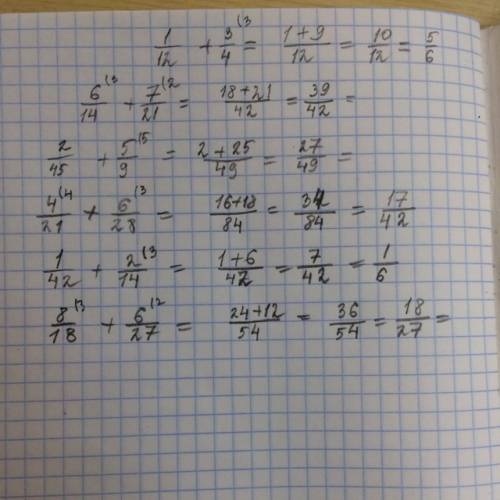 1/12 + 3/4 (3 = (1+9)/12 = 10/12 = 5/6
6/14 (3 + 7/21 (2 = (18+21)/42 = 39/42 =
2/45 + 5/9 (5 = (2+25)/49 = 27/49 =
4/21 (4 + 6/28 (3 = (16+18)/84 = 34/84 = 17/42
1/42 + 2/14 (3 = (1+6)/42 = 7/42 = 1/6
8/18 (3 + 6/27 (2 = (24+12)/54 = 36/54 = 18/27 =